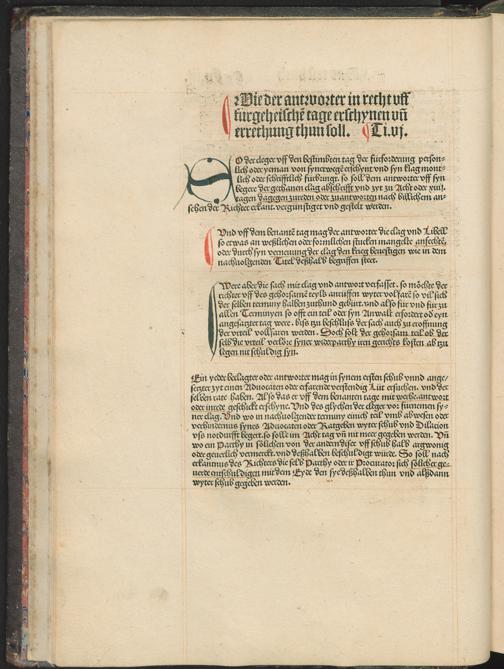 Wie der antworter in recht vff
fürgeheischē tage erschynen vñ
errechung thun soll. Ti.vj.
SO der cleger vff den bestimbten tag der fürforderung person-
lich oder yeman von synetwegē erschynt vnd syn klag munt-
lich oder schrifftlich fürbringt. so soll dem antworter vff syn
beger der gethanen clag abschrifft vnd zyt zu Acht oder xiiij.
tagen dagegen zureden oder zuantworten nach billichem an-
sehen der Richter erkant. vergünstiget vnd gestelt werden.
Vnd vff dem benantē tag mag der antworter die clag vnd Libell
so etwas an weßlichen oder formlichen stucken mangelte anfechtē,
oder durch syn verneinung der clag den krieg beuestigen wie in dem
nachuolgenden Titel deßhalb begriffen steet.
Were aber die sach mit clag vnd antwort verfasset. so möcht der
richter vff des gehorsamē teyls anruffen wyter volfarē so vil sich
der selben terminy halben zuthund gebürt. vnd also für vnd für zu
allen Terminyen so offt ein teil oder syn Anwalt erfordert od eyn
angesatzter tag were. biss zu beschluss der sach auch zu eroffnung
der vrteil vollfaren werden. Doch solt der gehorsam teil ob der
selb die vrteil verlöre syner widerparthy iren gerichts kosten ab zu
legen nit schuldig syn.
Ein yeder beclagter oder antworter mag in synem ersten schub vnnd ange-
setzter zyt einen Aduocaten oder erfarende verstendig Lüt ersuchen. vnd der
selben rate haben. Also das er vff dem benanten tage mit werhe. antwort
oder inrede geschickt erschyne. Vnd des glychen der cleger vor fürnemen sy-
ner clag. Vnd wo in nachuolgender terminy einich teil vmb abwesen oder
verhindernus synes Aduocaten oder Ratgeben wyter schub vnd Dilacion
vss notdurfft begert. so solle im Acht tag vñ nit meer gegeben werden. Vñ
wo ein Parthy in sölichen von der andern diser vff schub halb argwonig
oder geuerlich vermerckt vnd deßhalben beschuldigt würde. So soll nach
erkantnus des Richters die selb Parthy oder ir Procurator sich sölicher ge-
uerde entschuldigen mit dem Eyde den sy deßhalben thun vnd alßdann
wyter schub gegeben werden.